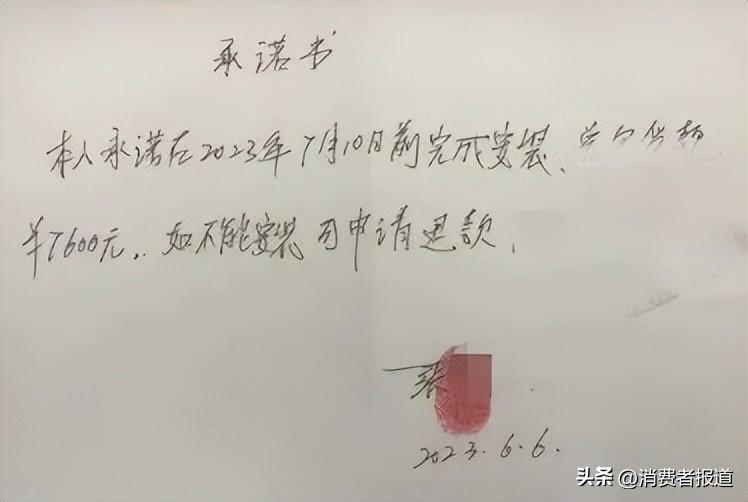 承诺书
本人承诺在2023年7月10日前完成安装、
7600元,如不能安装可申请退款,
张
2023.6.6.
头条 @消费者报道